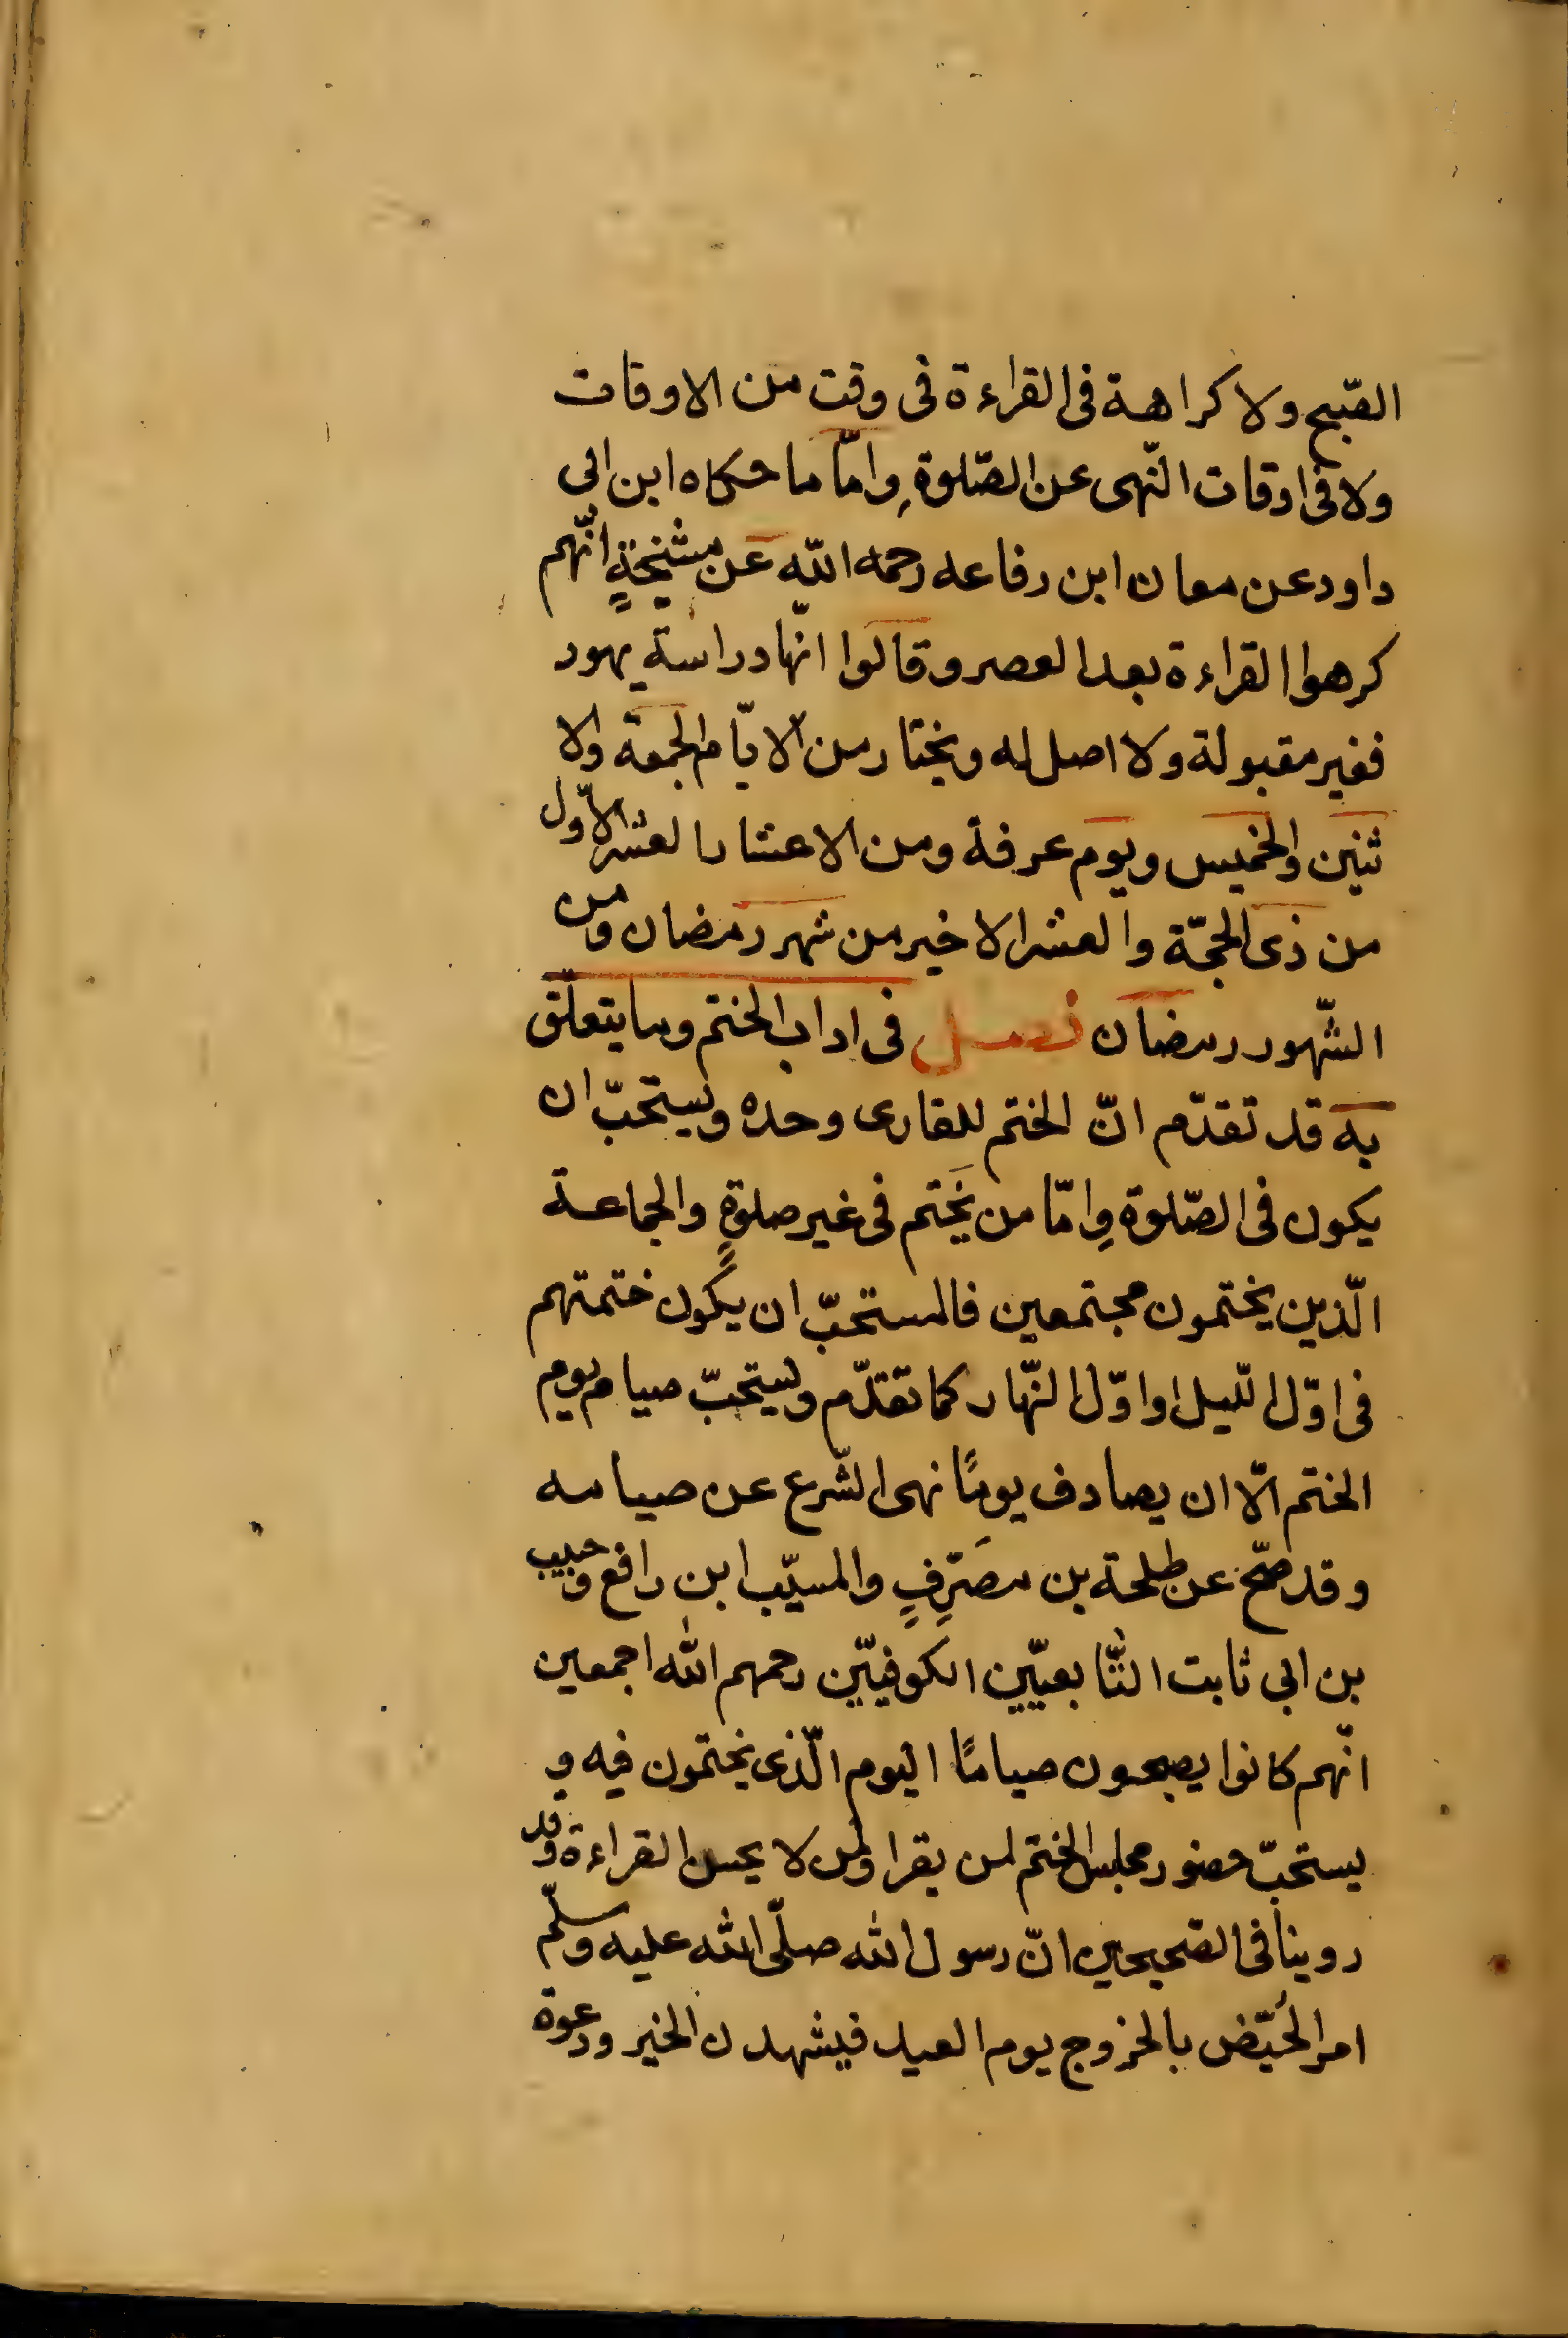 الصّبح ولا كراهة فى القراءة فى وقت من الاوقات
ولا فى اوقات النّهى عن الصّلوة وامّا ما حكاه ابن ابى
داود عن معان ابن رفاعه رحمه اللّه عن مشيخةٍ انّهم
كرهوا القراءة بعد العصر وقالوا انّها دراسة يهود
فغير مقبولة ولا اصل له ويختار من الايّام الجمعة والا
ثنين والخميس ويوم عرفة ومن الاعشار العشر الاوّل
من ذى الحجّة والعشر الاخير من شهر رمضان ومن
الشّهور رمضان فصل فى اداب الختم وما يتعلّق
به قد تقدّم انّ الختم للقارى وحده ويستحبّ ان
يكون فى الصّلوة وامّا من يَختم فى غير صلوةٍ والجماعة
الّذين يختمون مجتمعين فالمستحبّ ان يكون ختمتهم
فى اوّل اللّيل او اوّل النّهار كما تقدّم ويستحبّ صيام يوم
الختم الّا ان يصادف يومًا نهى الشّرع عن صيامه
وقد صحّ عن طلحة بن مصَرِّفٍ والمسيّب ابن رافع وحبيب
بن ابى ثابت التّابعيّين الكوفيّين رحمهم اللّه اجمعين
انّهم كانوا يصبحون صيامًا اليوم الّذى يختمون فيه و
يستحبّ حضور مجلس الختم لمن يقرا ولمن لا يحسن القراءة وقد
روينا فى الصّحيحين انّ رسول اللّه صلّى اللّه عليه وسلّم
امر الحُيّض بالخروج يوم العيد فيشهدن الخير ودعوة